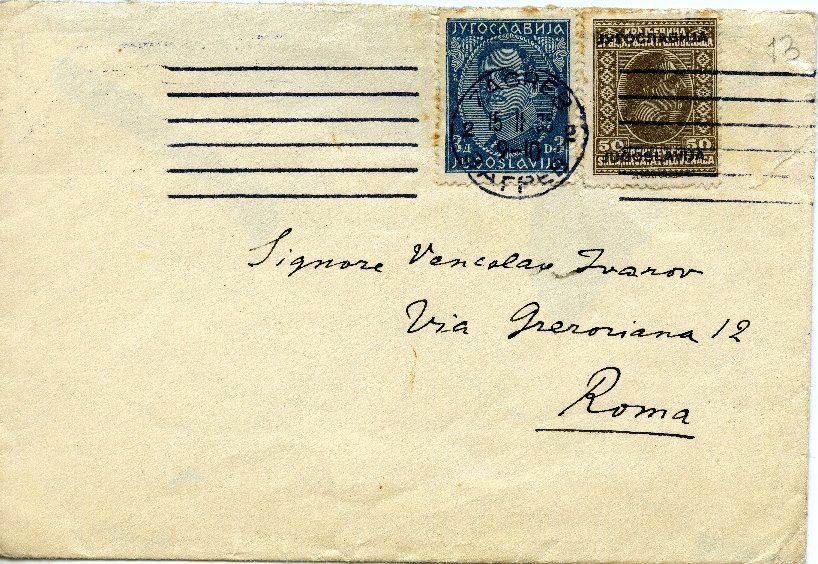 13
ЈУГОСЛАВИЈА
ЈУГОСЛАВИЈА
ZAGREB
2 15 2
9-10
ЗАГРЕБ
3 Д D. 3
JUGOSLAVIJA
50 50
JUGOSLAVIJA
Signore Venceslav Ivanov
Via Greroriana 12
Roma